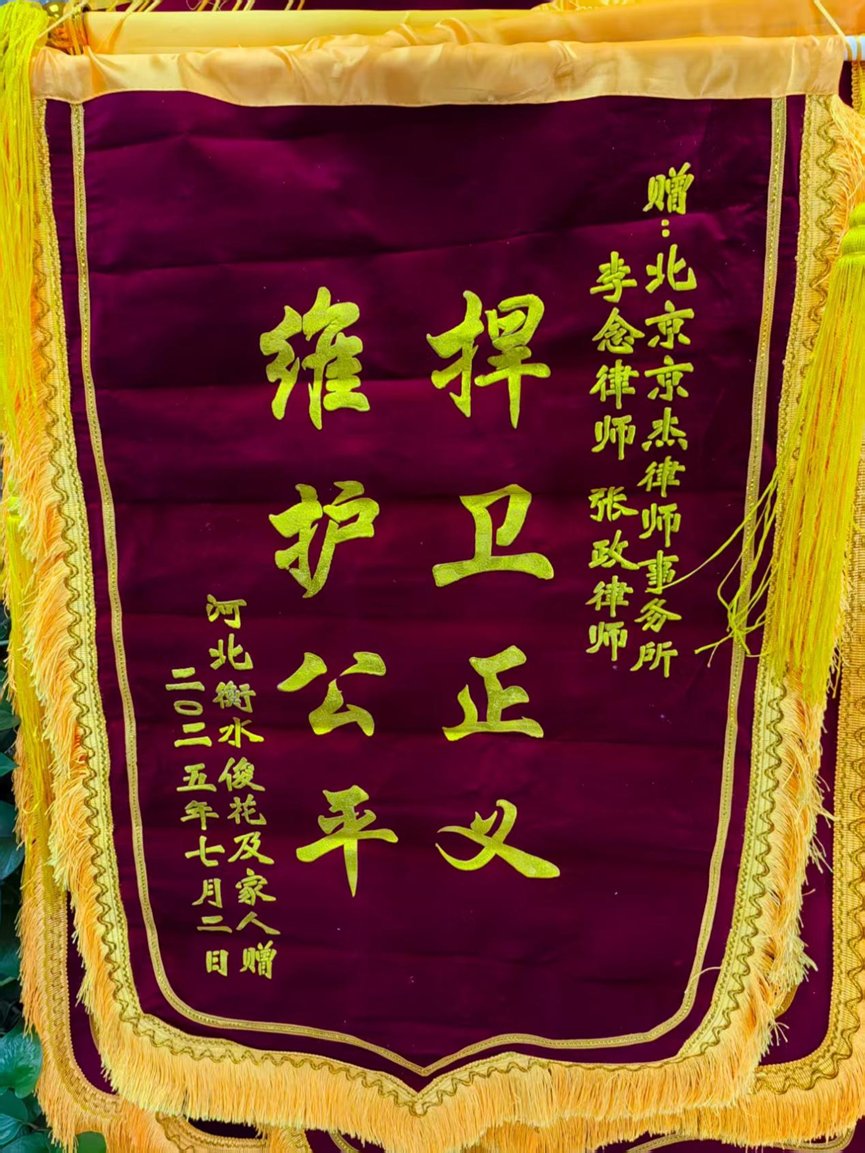 赠:北京京杰律师事务所
李念律师 张政律师
捍卫正义
维护公平
河北衡水俊花及家人赠
二〇二五年七月二日